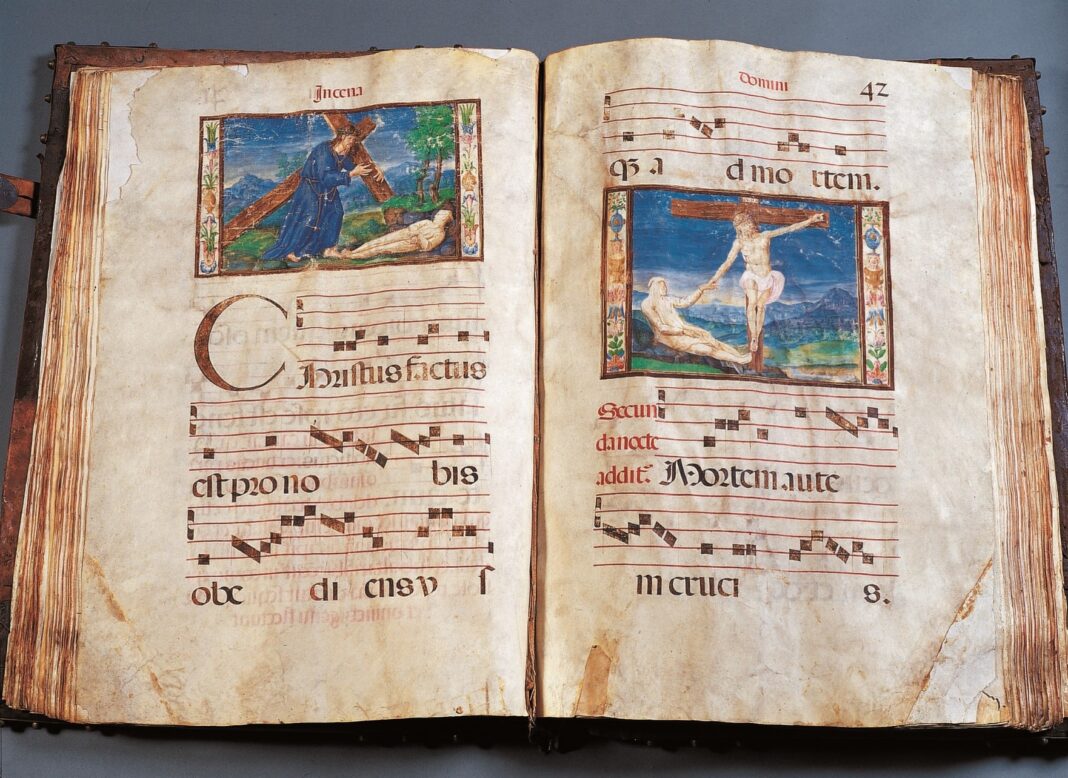 In cena
Christus factus
est pro no bis
obe di ens v s
Domini 42
qꝫ a d mo rtem.
Secun
da nocte
addit. Mortem aute
m cruci s.